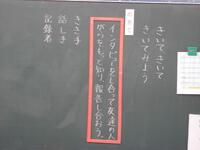 きいて きいて
きいてみよう
めあて
インタビューをし合って友達の人
がらをもっと知り、報告し合おう。
きき手
話し手
記録者